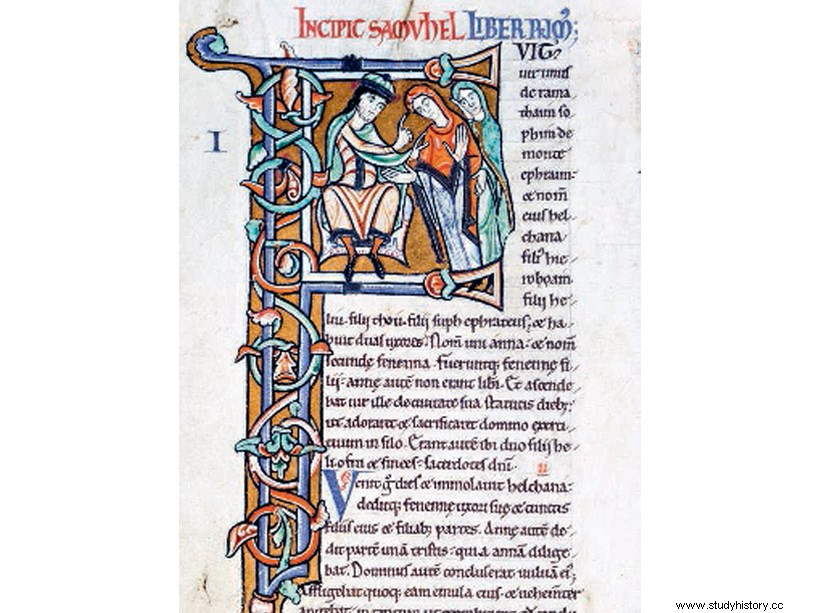 INCIPIT SAMUHEL LIBER PRIMꝰ;
I
VIT
uir unus
de rama
thaim so
phim de
monte
ephraim·
& nom̄
eius hel
chana
filiꝰ hie
roboam
filii he
liu· filii thou· filii suph ephrateus; & ha
buit duas uxores· Nom̄ uni anna· & nom̄
secunde fenenna. Fueruntq; fenenne fi
lii· anne autē non erant libi. Et ascende
bat uir ille de ciuitate sua statutis dieb;
ut adoraret & sacrificaret domino exerci
tuum in silo. Erant autē ibi duo filii he
li ofni & finees· sacerdotes dn̄i. II
Venit g̊ dies & immolauit helchana·
deditq; fenenne uxori sue & cunctis
filiis eius & filiab; partes. Anne autē de
dit partē unā tristis· quia annā dilige
bat. Dominus autē concluserat uuluā eiꝰ;
Affligebat quoq; eam emula eius & uehemter
angebat· in tantum ut
www.studyhistory.cc